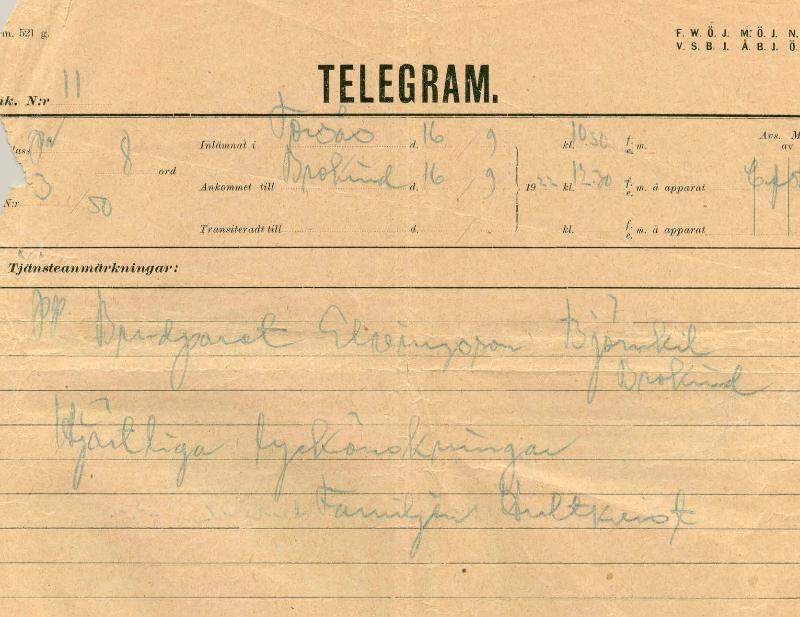 m. 521 g.
F. W. Ö. J. M. Ö. J. N.
V. S. B. J. Å. B. J. Ö.
TELEGRAM.
nk. N:r 11
lass 8 ord
Inlämnat i Torsås d. 16 9 kl. 10.50 f. e. m.
Avs. M av
Ankommet till Brokind d. 16 / 9 1922 kl. 12.30 f. e. m. å apparat
3
N:r / 50
Transiteradt till d. kl. f. e. m. å apparat
Tjänsteanmärkningar:
Brudparet Elvingsson Björnkil
Brokind
Hjärtliga lyckönskningar
Familjen Hultkvist